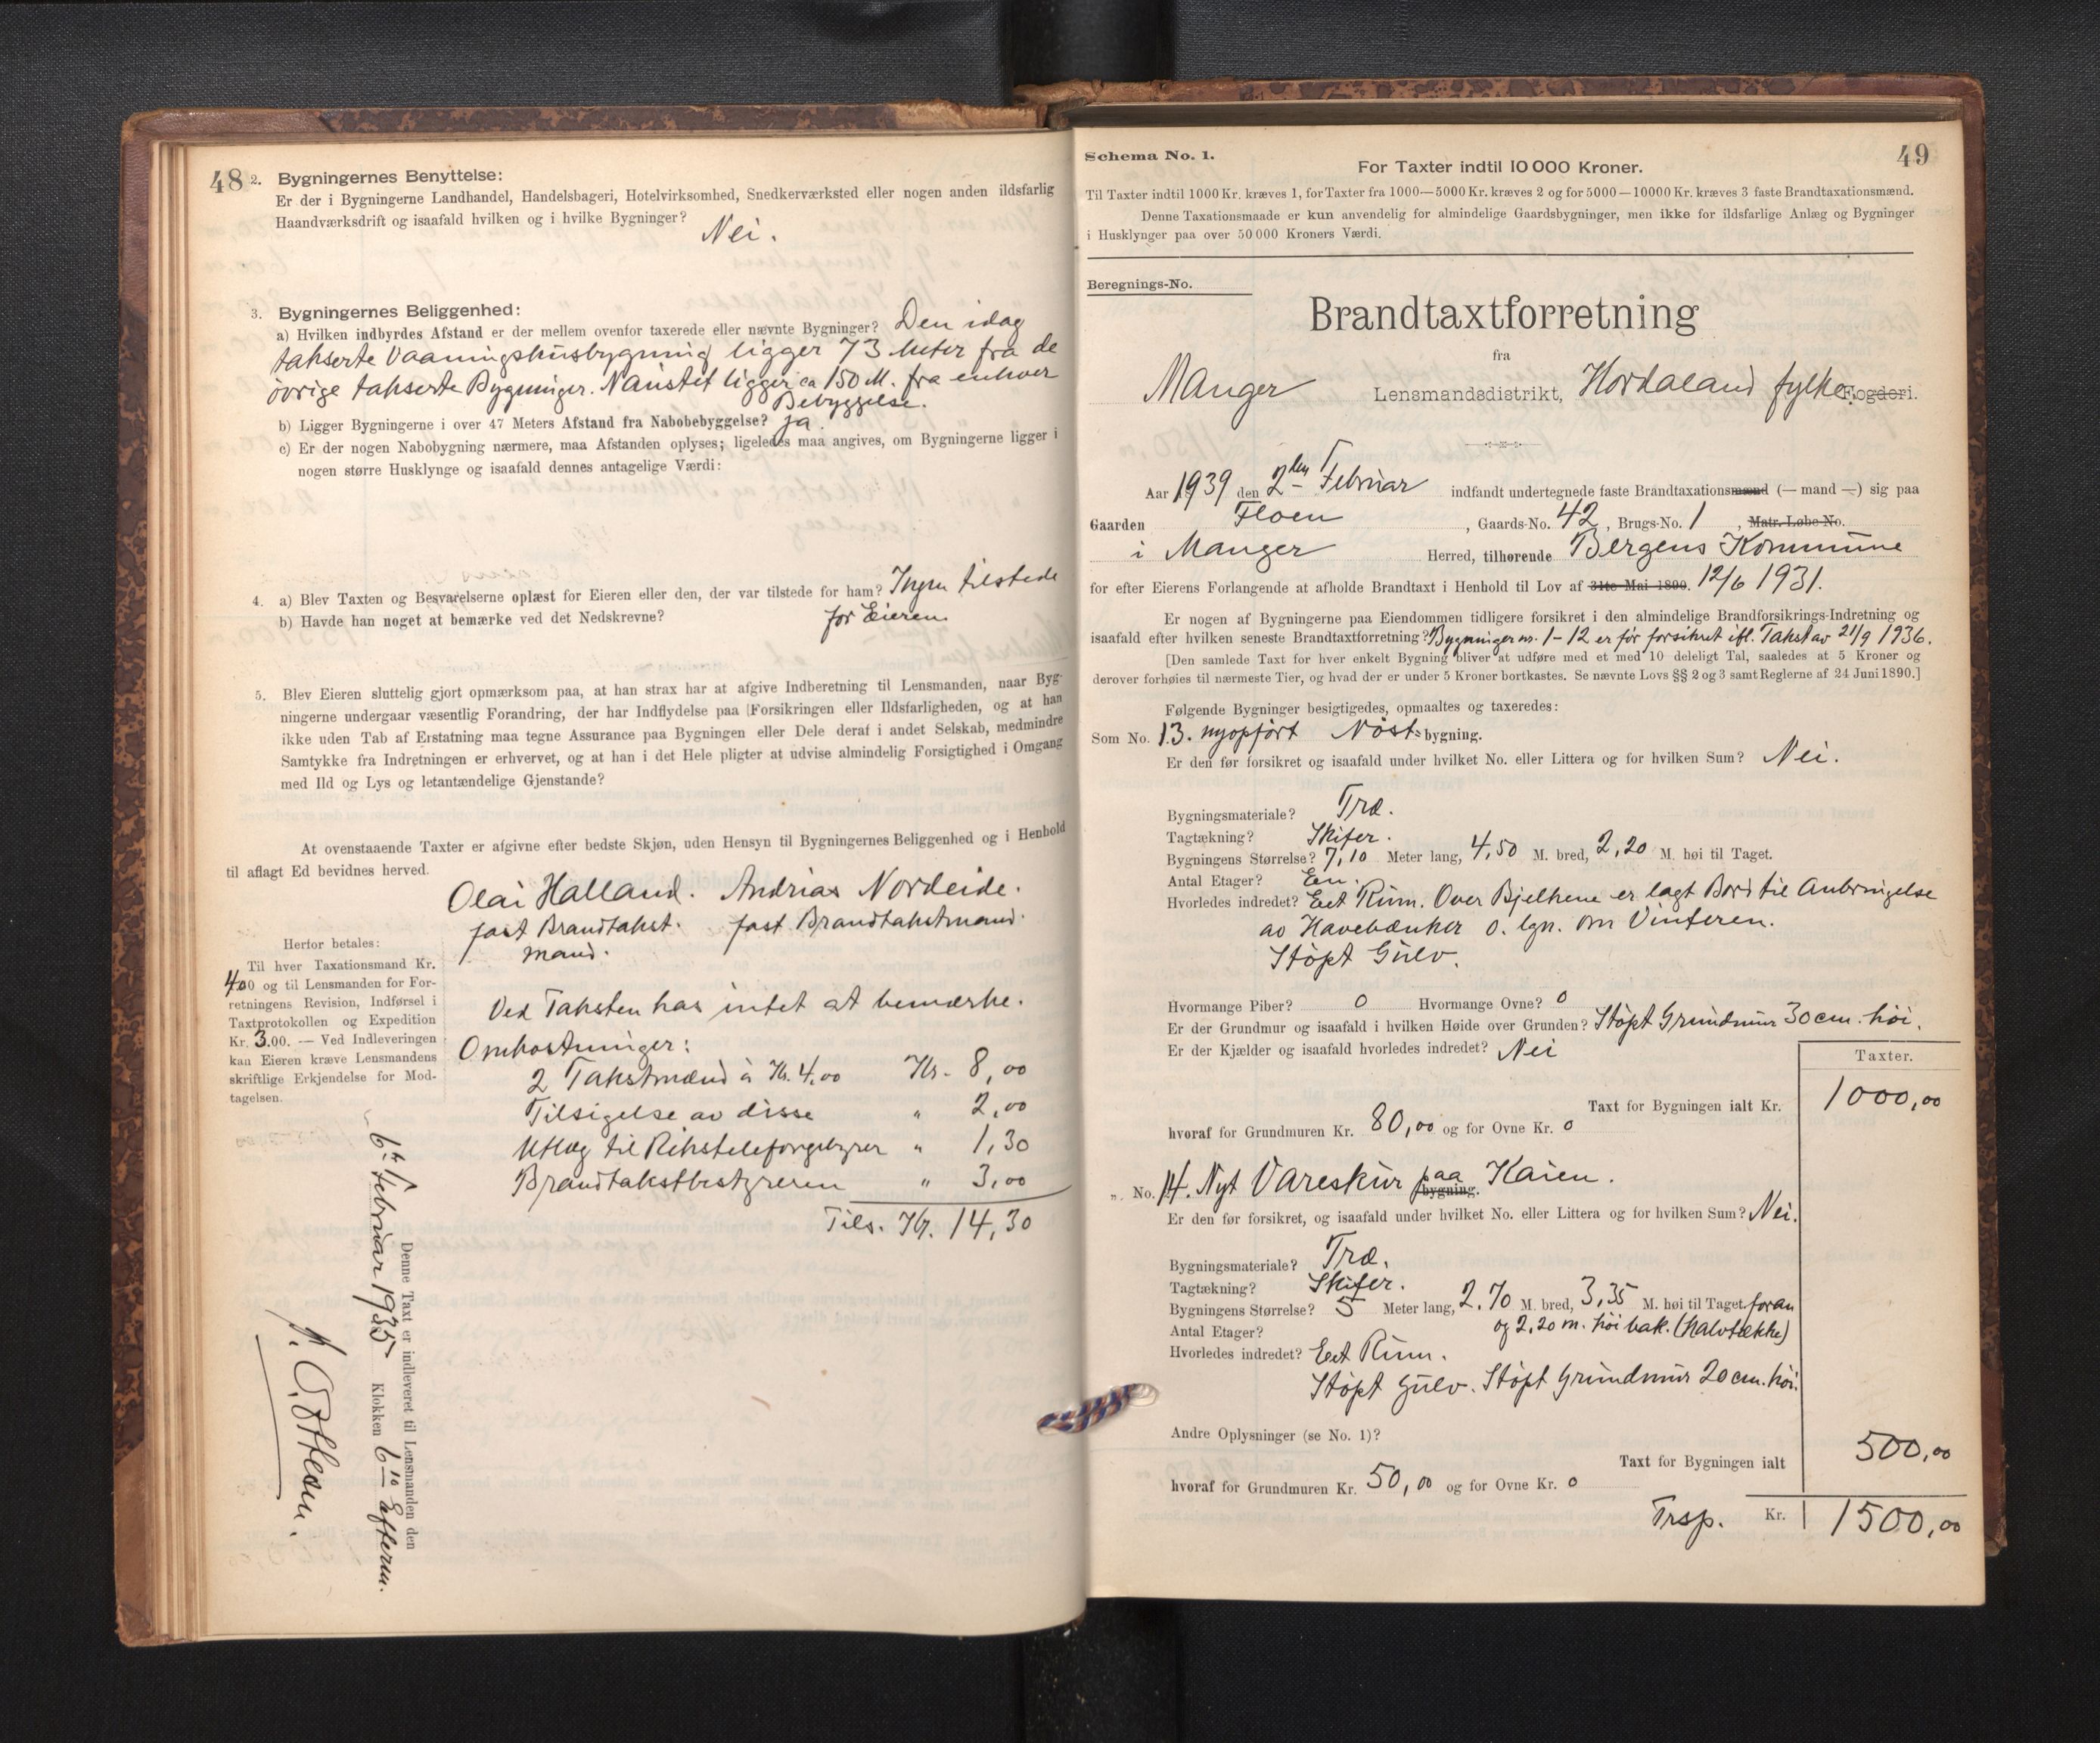 48
2. Bygningernes Benyttelse:
Er der i Bygningerne Landhandel, Handelsbageri, Hotelvirksomhed, Snedkerværksted eller nogen anden ildsfarlig
Haandværksdrift og isaafald hvilken og i hvilke Bygninger?
Nei.
3. Bygningernes Beliggenhed:
a) Hvilken indbyrdes Afstand er der mellem ovenfor taxerede eller nævnte Bygninger? Den idag
takserte Vaaningshusbygning ligger 73 Meter fra de
övrige takserte Bygninger. Naustet ligger ca 150 M. fra enhver
Bebyggelse.
b) Ligger Bygningerne i over 47 Meters Afstand fra Nabobebyggelse? Ja.
c) Er der nogen Nabobygning nærmere, maa Afstanden oplyses; ligeledes maa angives, om Bygningerne ligger i
nogen større Husklynge og isaafald dennes antagelige Værdi:
4. a) Blev Taxten og Besvarelserne oplæst for Eieren eller den, der var tilstede for ham? Ingen tilstede
b) Havde han noget at bemærke ved det Nedskrevne? for Eieren
5. Blev Eieren sluttelig gjort opmærksom paa, at han strax har at afgive Indberetning til Lensmanden, naar Byg-
ningerne undergaar væsentlig Forandring, der har Indflydelse paa Forsikringen eller Ildsfarligheden, og at han
ikke uden Tab af Erstatning maa tegne Assurance paa Bygningen eller Dele deraf i andet Selskab, medmindre
Samtykke fra Indretningen er erhvervet, og at han i det Hele pligter at udvise almindelig Forsigtighed i Omgang
med Ild og Lys og letantændelige Gjenstande?
At ovenstaaende Taxter er afgivne efter bedste Skjøn, uden Hensyn til Bygningernes Beliggenhed og i Henhold
til aflagt Ed bevidnes herved.
Olai Halland. Andrias Nordeide.
fast Brandtakst. fast Brandtakstmand.
mand.
Herfor betales:
Til hver Taxationsmand Kr.
4.00 og til Lensmanden for For-
retningens Revision, Indførsel i
Taxtprotokollen og Expedition
Kr. 3.00. — Ved Indleveringen
kan Eieren kræve Lensmandens
skriftlige Erkjendelse for Mod-
tagelsen.
Ved Taksten has intet at bemærke.
Omkostninger:
2 Takstmænd à Kr. 4,00 Kr. 8,00
Tilsigelse av disse " 2,00
Utlæg til Rikstelefongebyrer " 1,30
Brandtakstbestyreren " 3,00
Tils. Kr. 14,30
Denne Taxt er indleveret til Lensmanden den
6te Februar 1935 Klokken 6 10 Efterm.
49
Schema No. 1.
For Taxter indtil 10 000 Kroner.
Til Taxter indtil 1000 Kr. kræves 1, for Taxter fra 1000—5000 Kr. kræves 2 og for 5000—10000 Kr. kræves 3 faste Brandtaxationsmænd.
Denne Taxationsmaade er kun anvendelig for almindelige Gaardsbygninger, men ikke for ildsfarlige Anlæg og Bygninger
i Husklynger paa over 50 000 Kroners Værdi.
Beregnings-No.
Brandtaxtforretning
fra
Manger Lensmandsdistrikt, Hordaland fylke. Fogderi.
Aar 1939 den 2den Februar indfandt undertegnede faste Brandtaxationsmænd (— mand —) sig paa
Gaarden Floen, Gaards-No. 42, Brugs-No. 1, Matr. Løbe-No.
i Manger Herred, tilhørende Bergens Kommune
for efter Eierens Forlangende at afholde Brandtaxt i Henhold til Lov af 31te Mai 1890. 12/6 1931.
Er nogen af Bygningerne paa Eiendommen tidligere forsikret i den almindelige Brandforsikrings-Indretning og
isaafald efter hvilken seneste Brandtaxtforretning? Bygninger nr. 1-12 er før forsikret ifl. Takst av 21/9 1936.
[Den samlede Taxt for hver enkelt Bygning bliver at udføre med et med 10 deleligt Tal, saaledes at 5 Kroner og
derover forhøies til nærmeste Tier, og hvad der er under 5 Kroner bortkastes. Se nævnte Lovs §§ 2 og 3 samt Reglerne af 24 Juni 1890.]
Følgende Bygninger besigtigedes, opmaaltes og taxeredes:
Som No. 13. nyopført Nöst-bygning.
Er den før forsikret og isaafald under hvilket No. eller Littera og for hvilken Sum? Nei.
Bygningsmateriale? Træ.
Tagtækning? Skifer.
Bygningens Størrelse? 7,10 Meter lang, 4,50 M. bred, 2,20 M. høi til Taget.
Antal Etager? Een.
Hvorledes indredet? Eet Rum. Over Bjelkene er lagt Bord til Anbringelse
av Havebænker o. lgn. om Vinteren.
Støpt Gulv.
Hvormange Piber? 0 Hvormange Ovne? 0
Er der Grundmur og isaafald i hvilken Høide over Grunden? Støpt Grundmur 30 cm. høi.
Er der Kjælder og isaafald hvorledes indredet? Nei
Taxter.
Taxt for Bygningen ialt Kr. 1000,00
hvoraf for Grundmuren Kr. 80,00 og for Ovne Kr. 0
„ No. 14. Nyt Vareskur paa Kaien. bygning.
Er den før forsikret, og isaafald under hvilket No. eller Littera og for hvilken Sum? Nei.
Bygningsmateriale? Træ.
Tagtækning? Skifer.
Bygningens Størrelse? 5 Meter lang, 2.70 M. bred, 3,35 M. høi til Taget foran
Antal Etager? og 2,20 m. høi bak. (halvtække)
Hvorledes indredet? Eet Rum.
Støpt Gulv. Støpt Grundmur 20 cm. høi.
Andre Oplysninger (se No. 1)?
Taxt for Bygningen ialt 500,00
hvoraf for Grundmuren Kr. 50,00 og for Ovne Kr. 0
Trsp. Kr. 1500,00